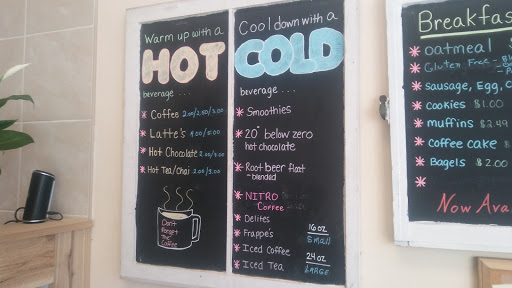 Warm up with a
HOT
beverage . . .
Coffee 2.00/2.50/3.00
Latte's 4.00/5.00
Hot Chocolate 2.00/3.00
Hot Tea/Chai 2.00/3.00
Don't
Forget
The
Coffee
Cool down with a
COLD
beverage . . .
Smoothies
20° below zero
hot chocolate
Root beer float
-blended
NITRO
Coffee
Delites
Frappe's
Iced Coffee
Iced Tea
16 oz
SMALL
24 oz
LARGE
Breakfas
oatmeal $
Gluten Free -
Sausage, Egg, C
cookies $1.00
muffins $2.49
coffee cake $
Bagels $2.00
Now Ava